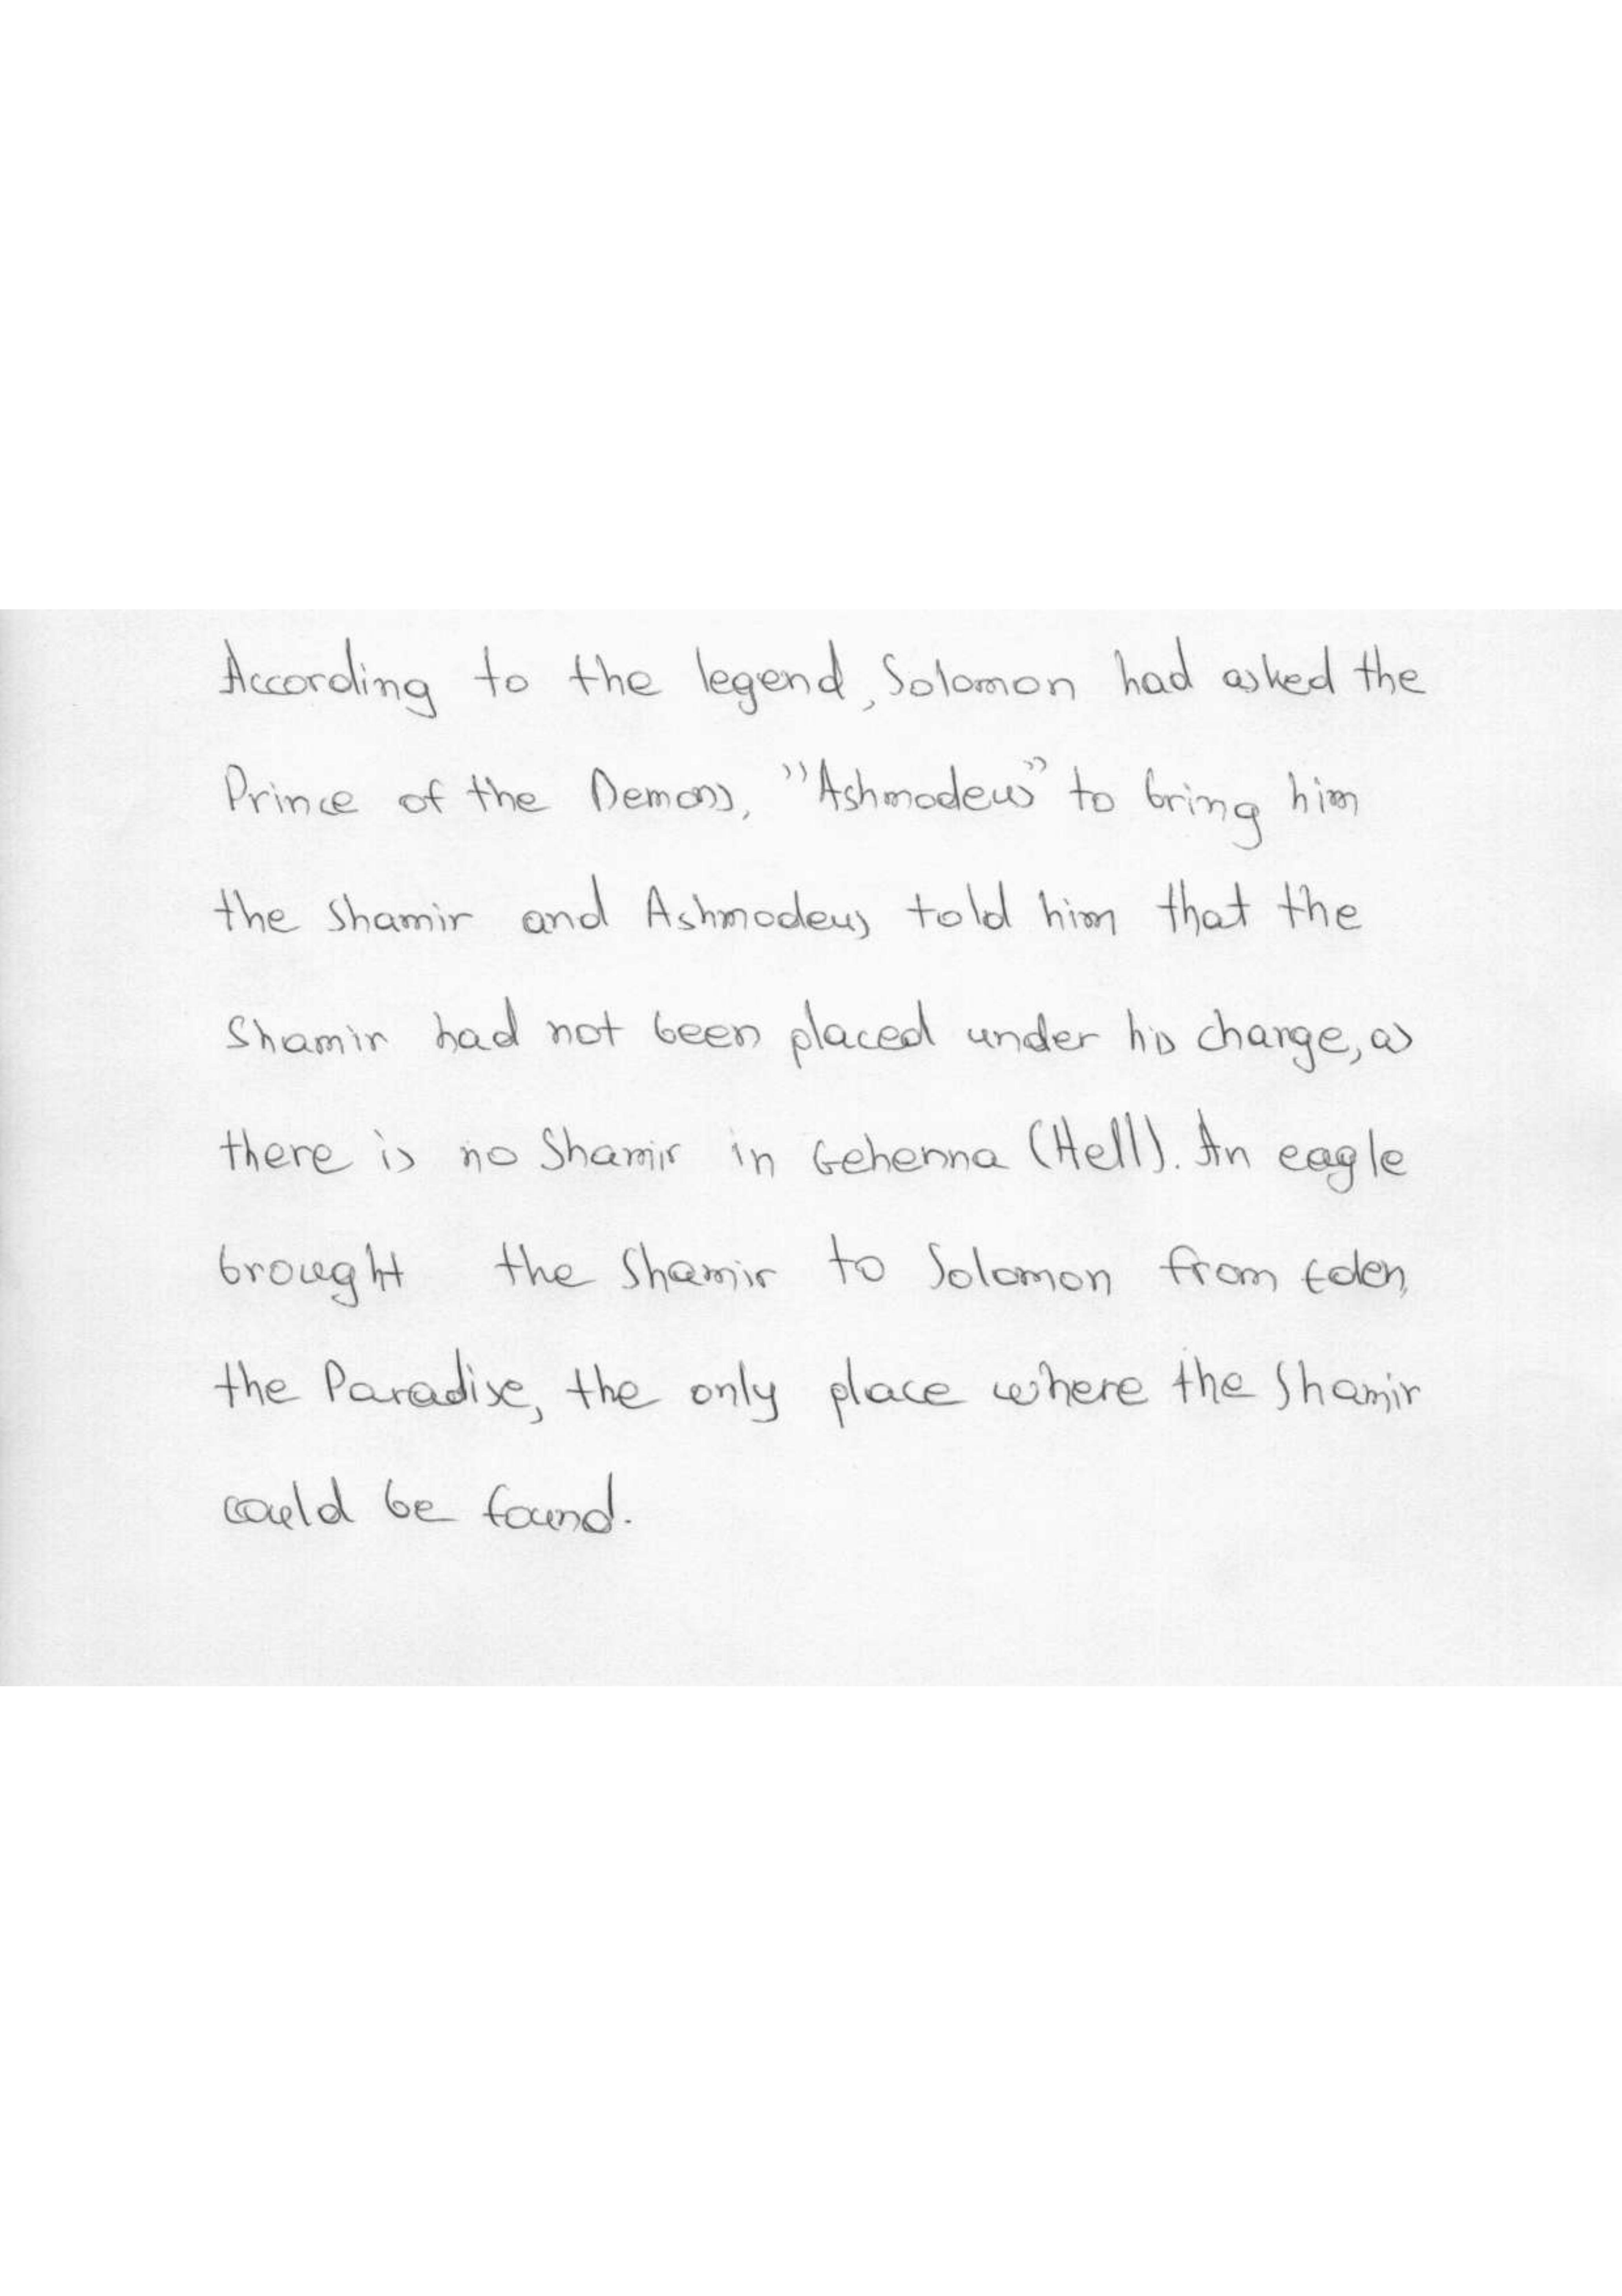 According to the legend, Solomon had asked the
Prince of the Demons, "Ashmodeus" to bring him
the Shamir and Ashmodeus told him that the
Shamir had not been placed under his charge, as
there is no Shamir in Gehenna (Hell). An eagle
brought the Shamir to Solomon from Eden,
the Paradise, the only place where the Shamir
could be found.